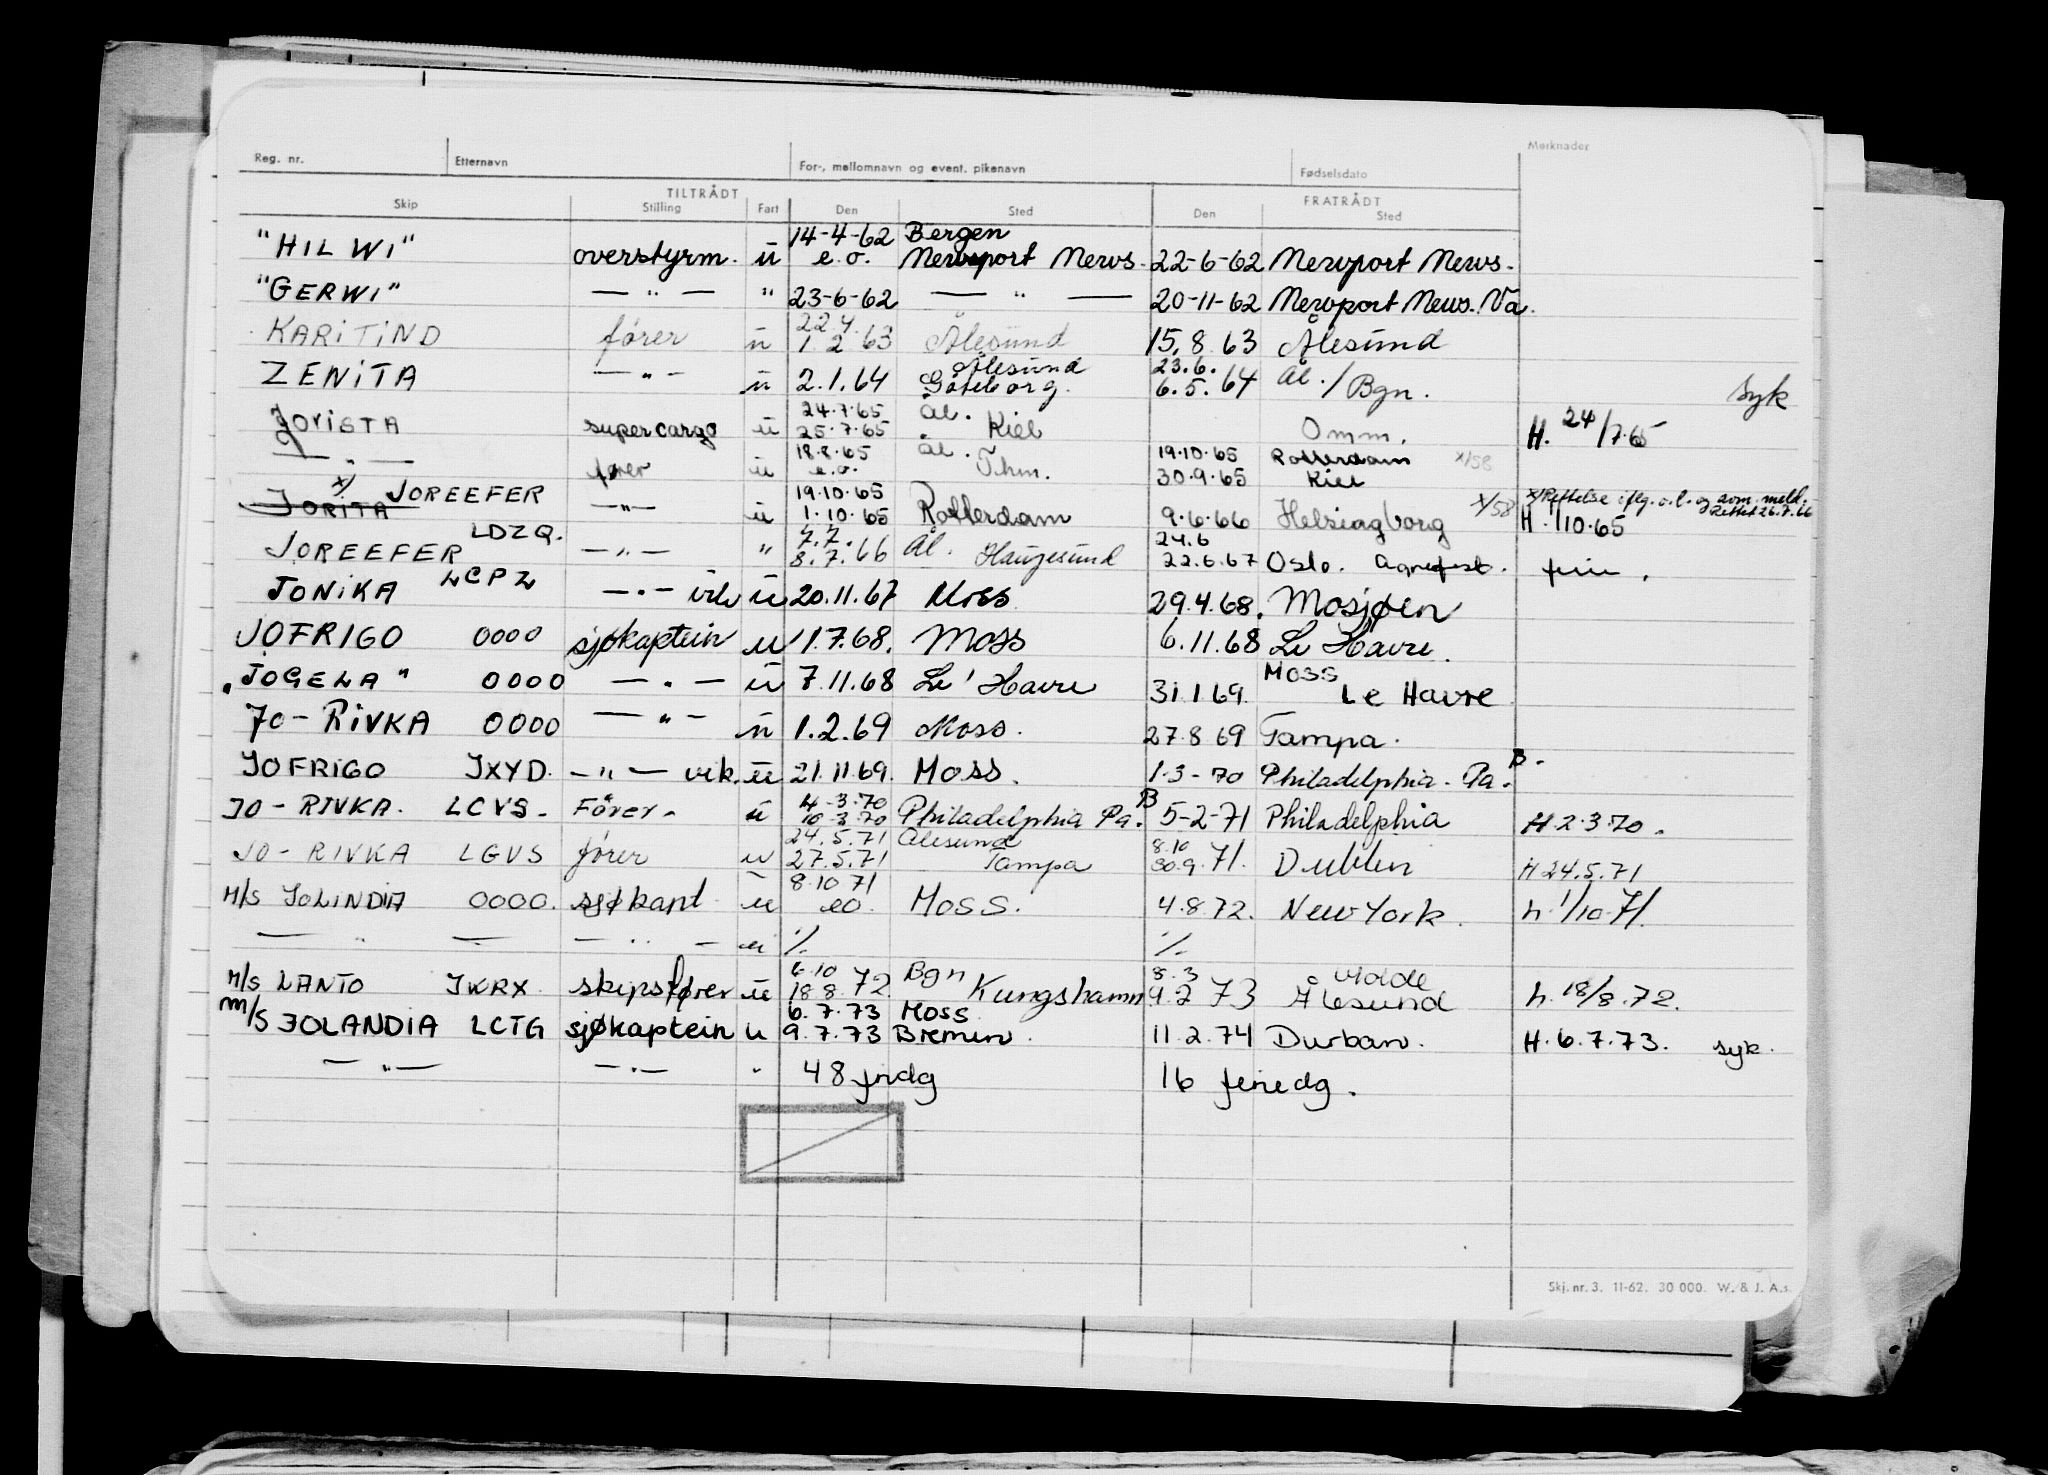 Reg. nr. Etternavn For-, mellomnavn og event. pikenavn Fødselsdato Merknader
TILTRÅDT FRATRÅDT
Skip Stilling Fart Den Sted Den Sted
"HILWI" overstyrm. u 14-4-62 e.o. Bergen Newport News. 22-6-62 Newport News.
"GERWI" — " — " 23-6-62 — " — 20-11-62 Newport News. Va.
KARITIND fører u 22.4. 1.2.63 Ålesund 15.8.63 Ålesund
ZENITA — " — u 2.1.64 Ålesund Göteborg. 23.6. 6.5.64 Ål./Bgn. syk
JORISTA supercargo u 24.7.65 25.7.65 Ål. Kiel Omm. H. 24/7.65
— " — fører u 18.8.65 e.o. Ål. Thm. 19.10.65 30.9.65 Rotterdam Kiel x/58
JORITA x/ JOREEFER — " — u 19.10.65 1.10.65 Rotterdam 9.6.66 Helsingborg x/58 x/Rettelse iflg. o.l. og som meld. rettet 26.7.66 H. 1/10.65
JOREEFER LDZQ. — " — " 7.7. 8.7.66 Ål. Haugesund 24.6 22.6.67 Oslo. ferie.
JONIKA LCPZ — " — vik u 20.11.67 Moss 29.4.68. Mosjøen
JOFRIGO 0000 sjøkaptein u 1.7.68. Moss 6.11.68 Le Havre.
"JOGELA" 0000 — " — u 7.11.68 Le Havre 31.1.69. Moss Le Havre
JO-RIVKA 0000 — " — u 1.2.69 Moss. 27.8.69 Tampa.
JOFRIGO JXYD. — " — vik. u 21.11.69. Moss. 1-3-70 Philadelphia. Pa. B.
JO-RIVKA. LCVS. Fører. u 4-3-70 10-3-70 Philadelphia Pa. B 5-2-71 Philadelphia H 2.3.70.
JO-RIVKA LGVS fører u 24.5.71 27.5.71 Ålesund Tampa 8.10 30.9.71. Dublin H 24.5.71
M/S JOLINDIA 0000. sjøkapt u 8.10.71 eo. Moss. 4.8.72. New York. h. 1/10-71.
— " — — " — u % %
M/S LANTO JWRX skipsfører u 6.10 18.8.72. Bgn Kungshamn 8.3 9.2 73 Molde Ålesund h. 18/8.72.
M/S JOLANDIA LCTG sjøkaptein u 6.7.73 9.7.73 Moss Bremen. 11.2.74 Durban. H. 6.7.73. syk.
— " — — " — " 48 fridg 16 feriedg.
Skj. nr. 3. 11-62. 30 000. W. & J. A.s.